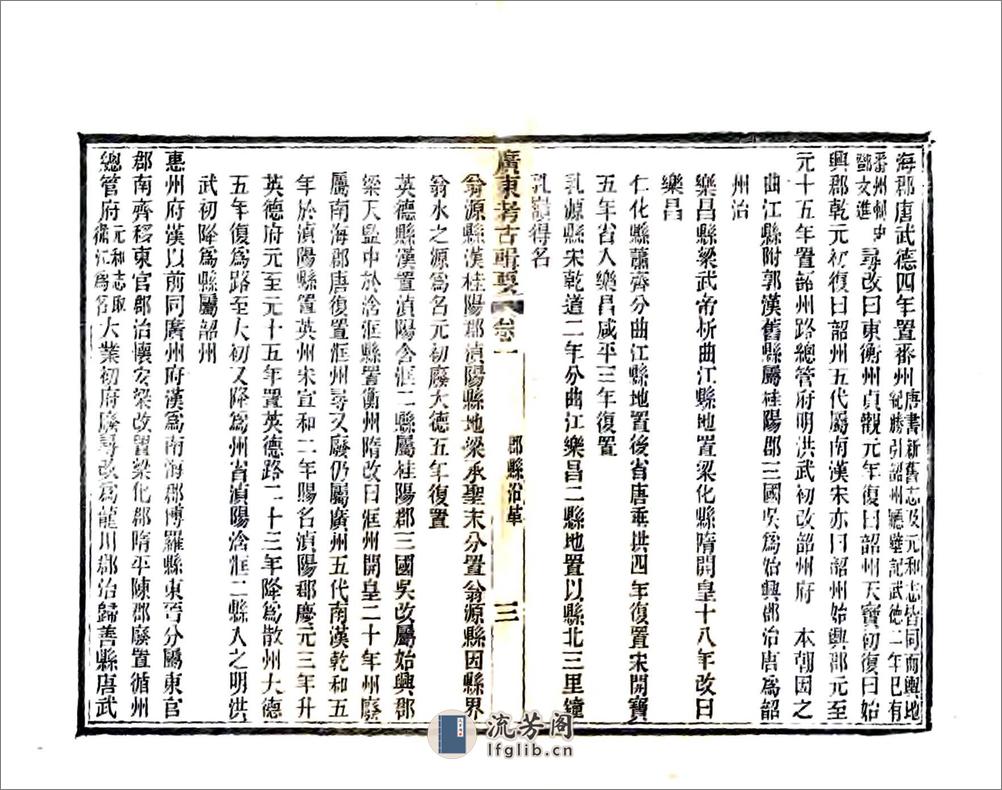 海郡唐武德四年置番州唐書新舊志及元和志皆同而輿地
紀勝引韶州廳壁記武德二年已有
番州刺史
鄧文進尋改曰東衡州貞觀元年復曰韶州天寶初復曰始
興郡乾元初復曰韶州五代屬南漢宋亦曰韶州始興郡元至
元十五年置韶州路總管府明洪武初改韶州府 本朝因之
曲江縣附郭漢舊縣屬桂陽郡三國吳爲始興郡治唐爲韶
州治
樂昌縣梁武帝析曲江縣地置梁化縣隋開皇十八年改曰
樂昌
仁化縣蕭齊分曲江縣地置後省唐垂拱四年復置宋開寶
五年省入樂昌咸平三年復置
乳源縣宋乾道二年分曲江樂昌二縣地置以縣北三里鐘
乳嶺得名
廣東考古輯要 卷一 郡縣沿革 三
翁源縣漢桂陽郡湞陽縣地梁承聖末分置翁源縣因縣界
翁水之源爲名元初廢大德五年復置
英德縣漢置湞陽含洭二縣屬桂陽郡三國吳改屬始興郡
梁天監中於浛洭縣置衡州隋改曰洭州開皇二十年州廢
屬南海郡唐復置洭州尋又廢仍屬廣州五代南漢乾和五
年於湞陽縣置英州宋宣和二年賜名湞陽郡慶元三年升
英德府元至元十五年置英德路二十三年降爲散州大德
五年復爲路至大初又降爲州省湞陽浛洭二縣入之明洪
武初降爲縣屬韶州
惠州府漢以前同廣州府漢爲南海郡博羅縣東晉分屬東官
郡南齊移東官郡治懷安梁改置梁化郡隋平陳郡廢置循州
總管府元和志取
循江爲名大業初府廢尋改爲龍川郡治歸善縣唐武
流芳阁
lfglib.cn